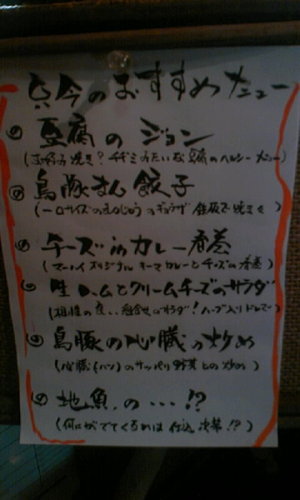 只今のおすすめメニュー
豆腐のジョン
(お好み焼き?チヂミみたいな豆腐のヘルシーメニュー)
島豚まん餃子
(一口サイズの ギョウザ 鉄板で焼きます)
チーズinカレー春巻
(オリジナルキーマカレーとチーズの春巻)
生ハムとクリームチーズのサラダ
(相性の良い組合せのサラダ!ハーブ入りドレで)
島豚の心臓の炒め
(心臓(ハツ)のサッパリ野菜との炒め)
地魚の・・・!?
(何がでてくるかは仕込次第!?)